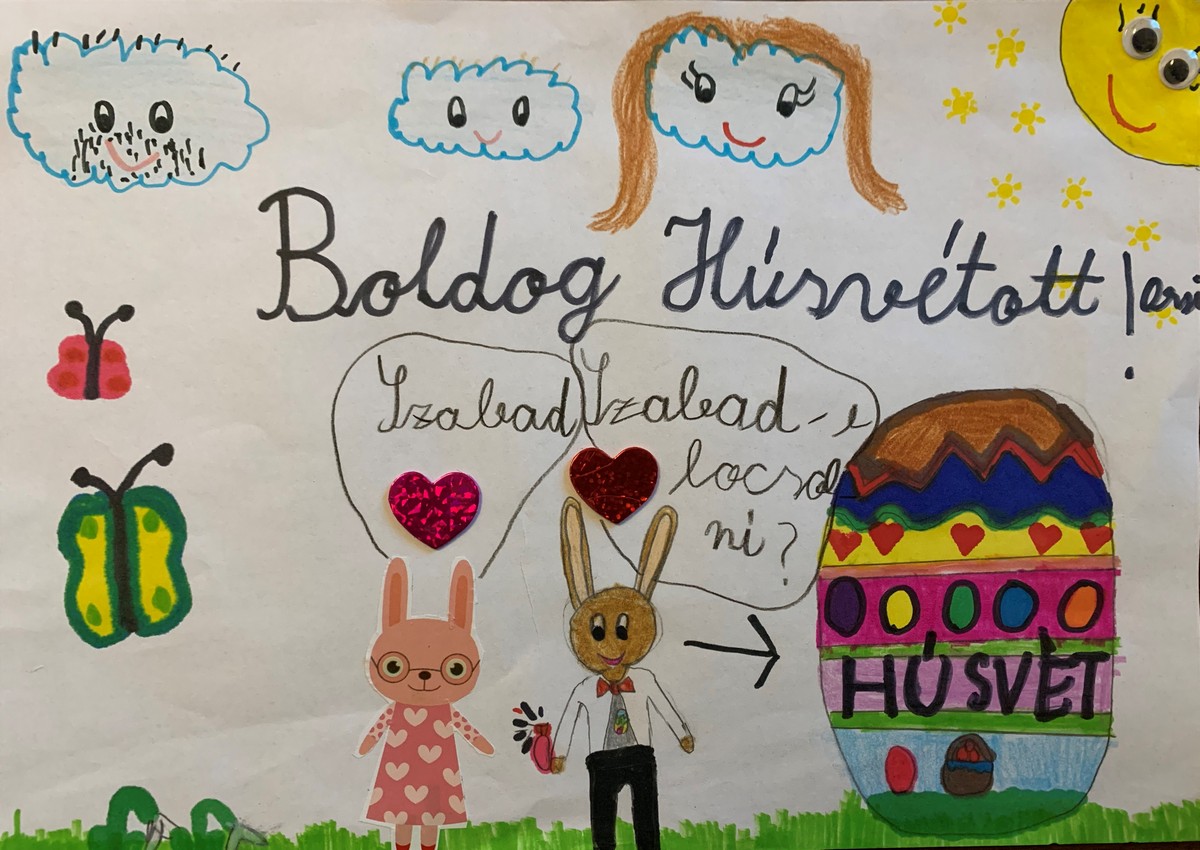 Boldog Húsvétott!
Szabad
Szabad-e
locsol
ni?
HÚSVÈT